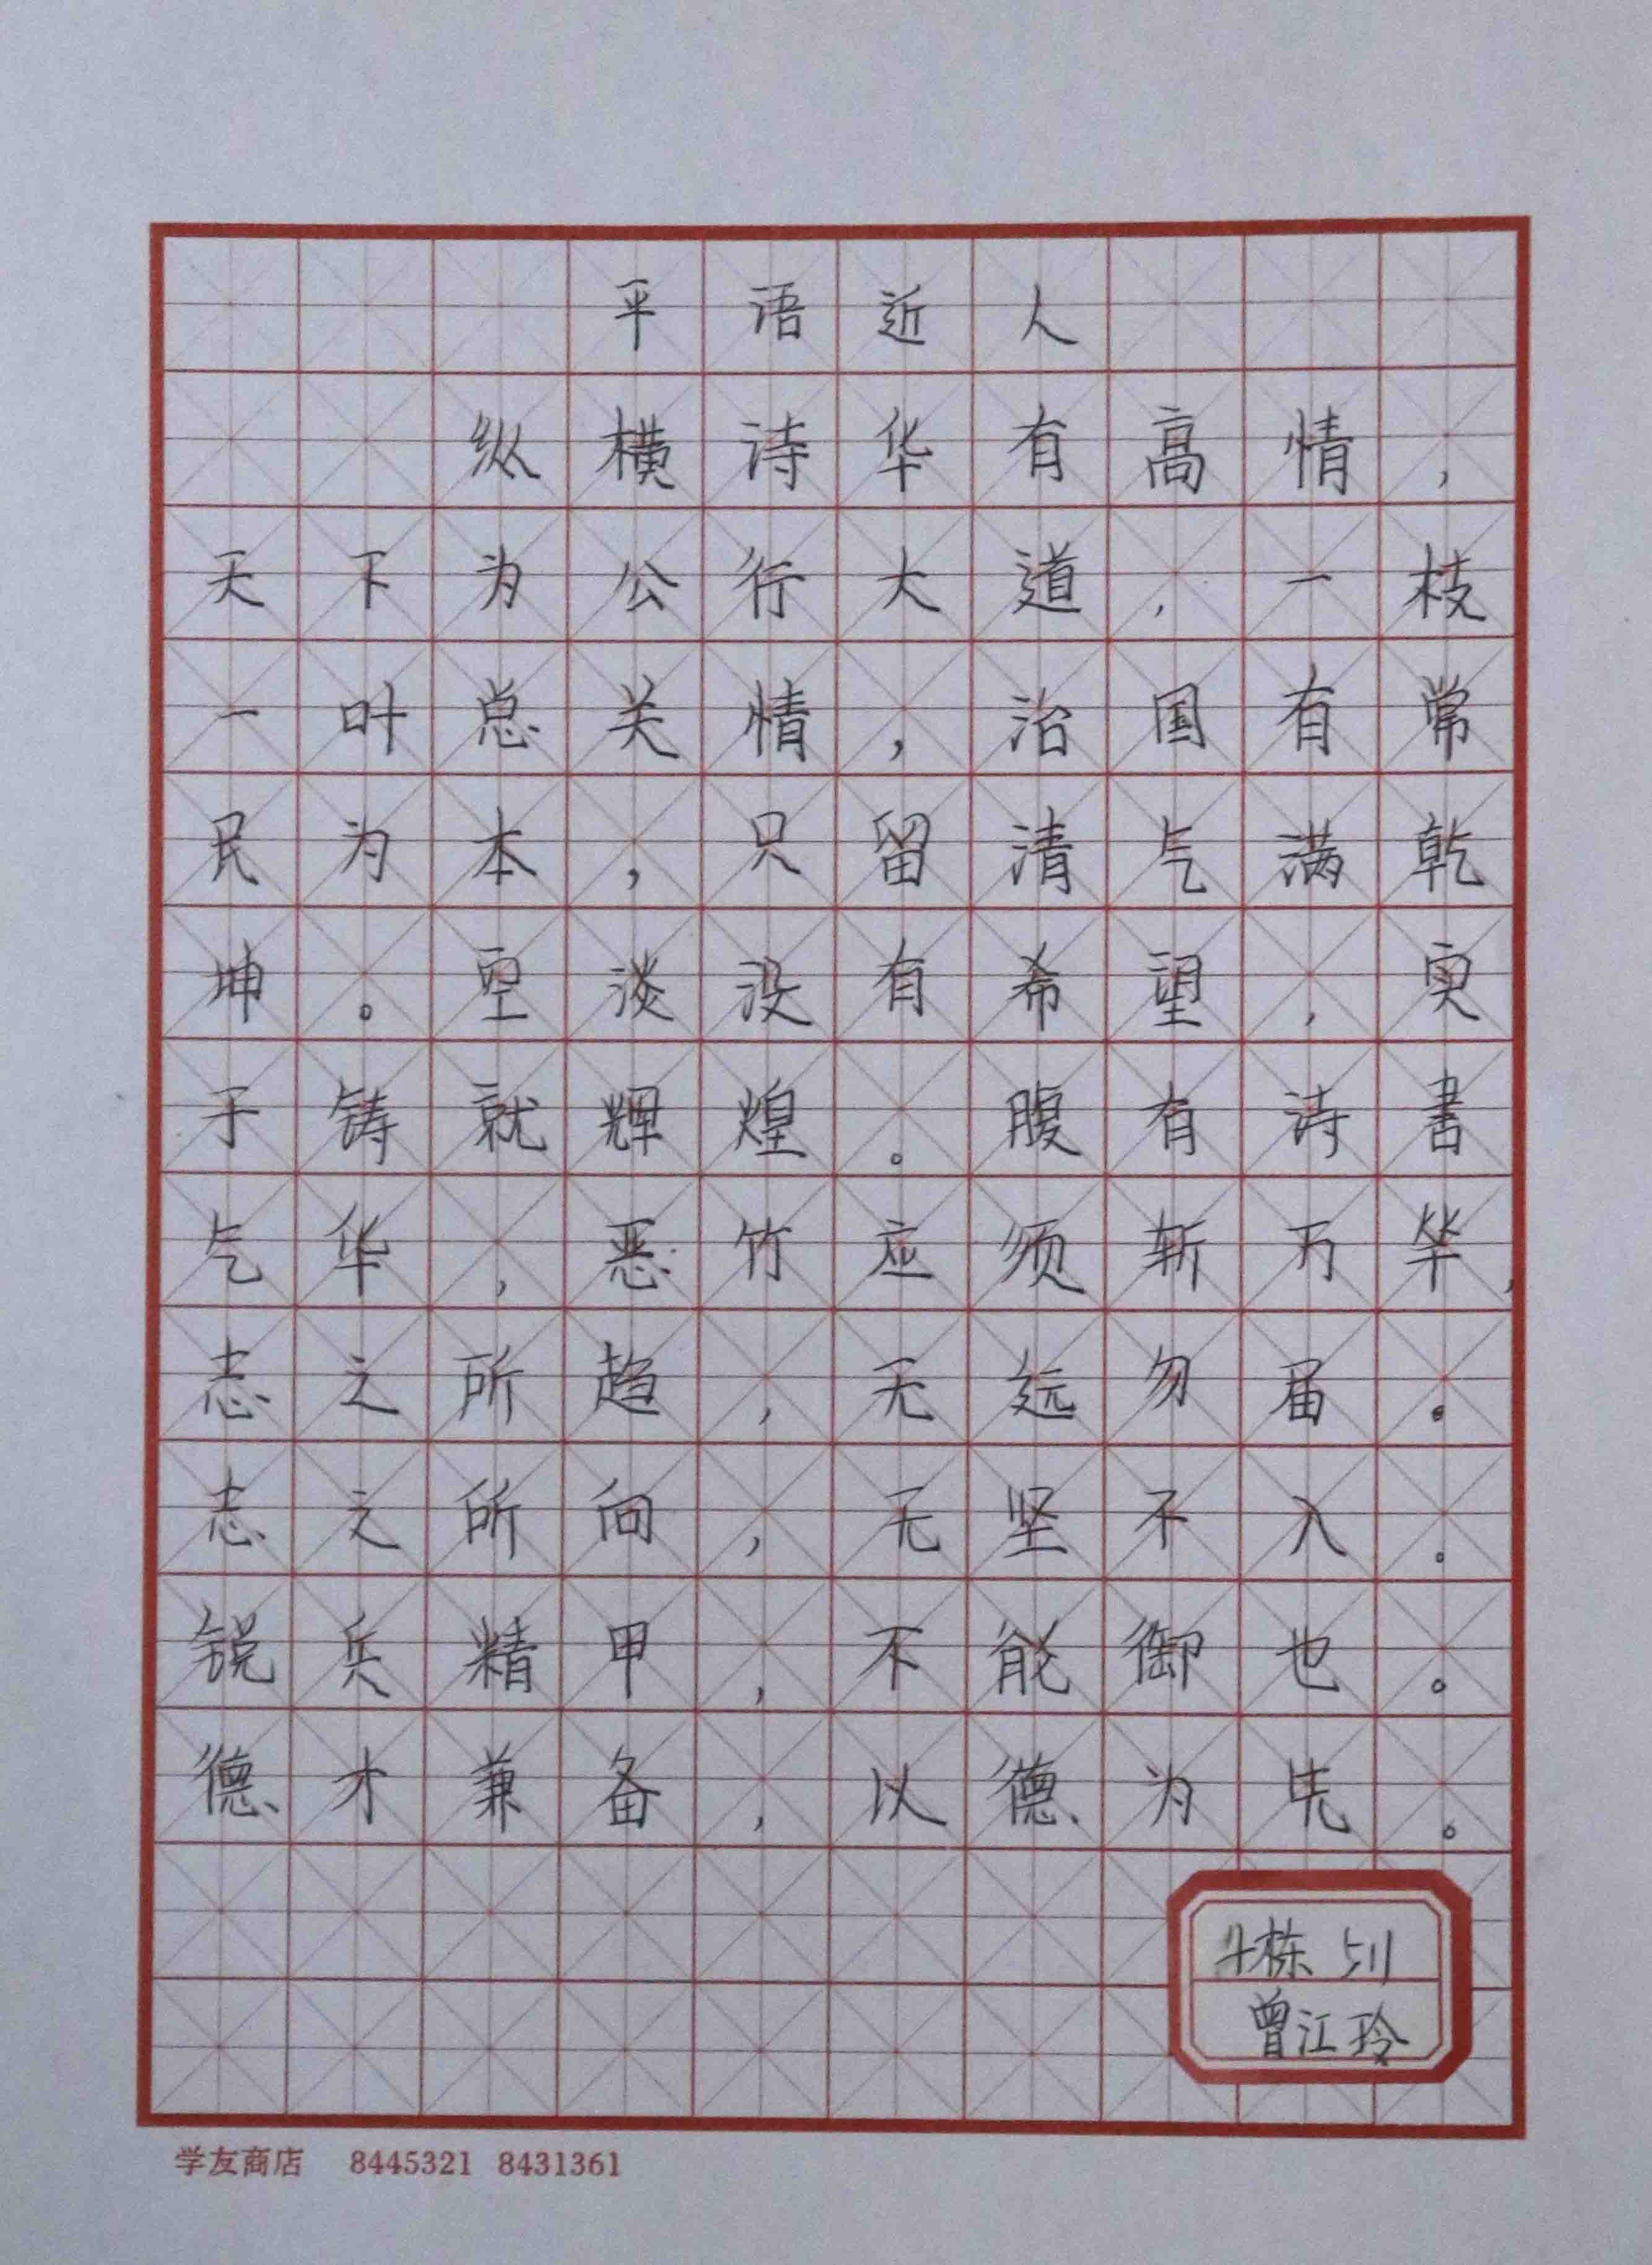 平语近人
纵横诗华有高情，
天下为公行大道，一枝
一叶总关情，治国有常
民为本，只留清气满乾
坤。空淡没有希望，实
于铸就辉煌。腹有诗書
气华，恶竹应须斩万竿，
志之所趋，无远勿届。
志之所向，无坚不入。
锐兵精甲，不能御也。
德才兼备，以德为先。
斗栋 511
曾江玲
学友商店 8445321 8431361